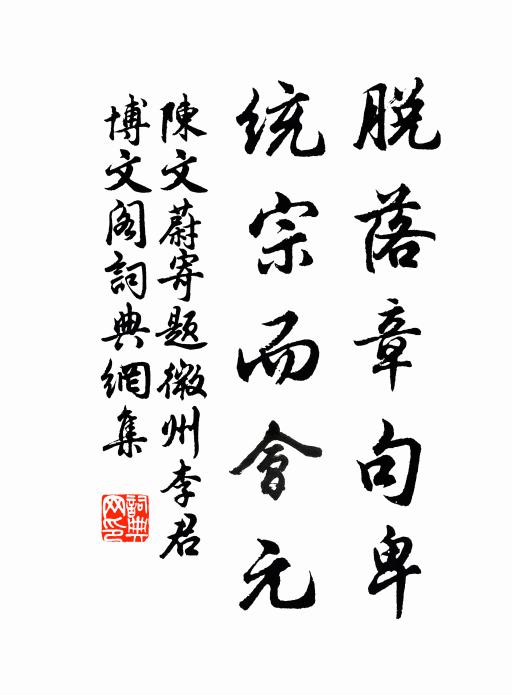 脱落章句卑
統宗而會元
陳文蔚寄題徽州李君
博文阁詞典網集
詞典网印